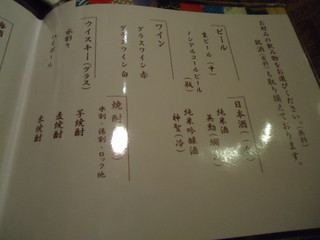 お好みの飲み物をお選びください。(無料)
も取り揃えております。
ビール
生ビール(中)
ノンアルコールビール
(瓶)
日本酒(一合)
純米酒
純米吟醸酒
神聖(冷)
ワイン
グラスワイン 赤
グラスワイン 白
焼酎
水割・湯割・ロック 他
ウイスキー(グラス)
水割り
ハイボール
芋焼酎
麦焼酎
米焼酎